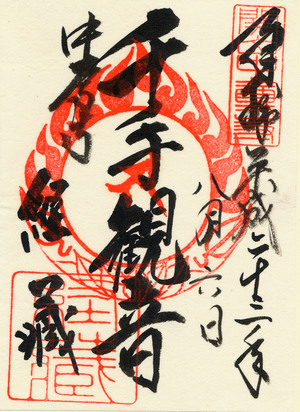 奉拝 平成二十三年
八月六日
千手観音
中尊寺
経蔵